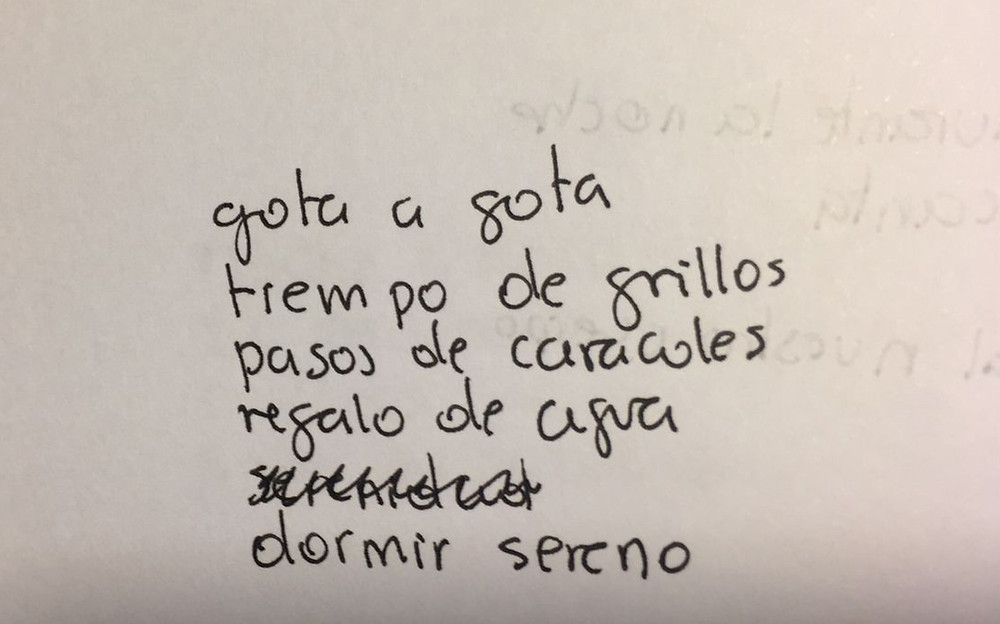 gota a gota
tiempo de grillos
pasos de caracoles
regalo de agua
dormir sereno